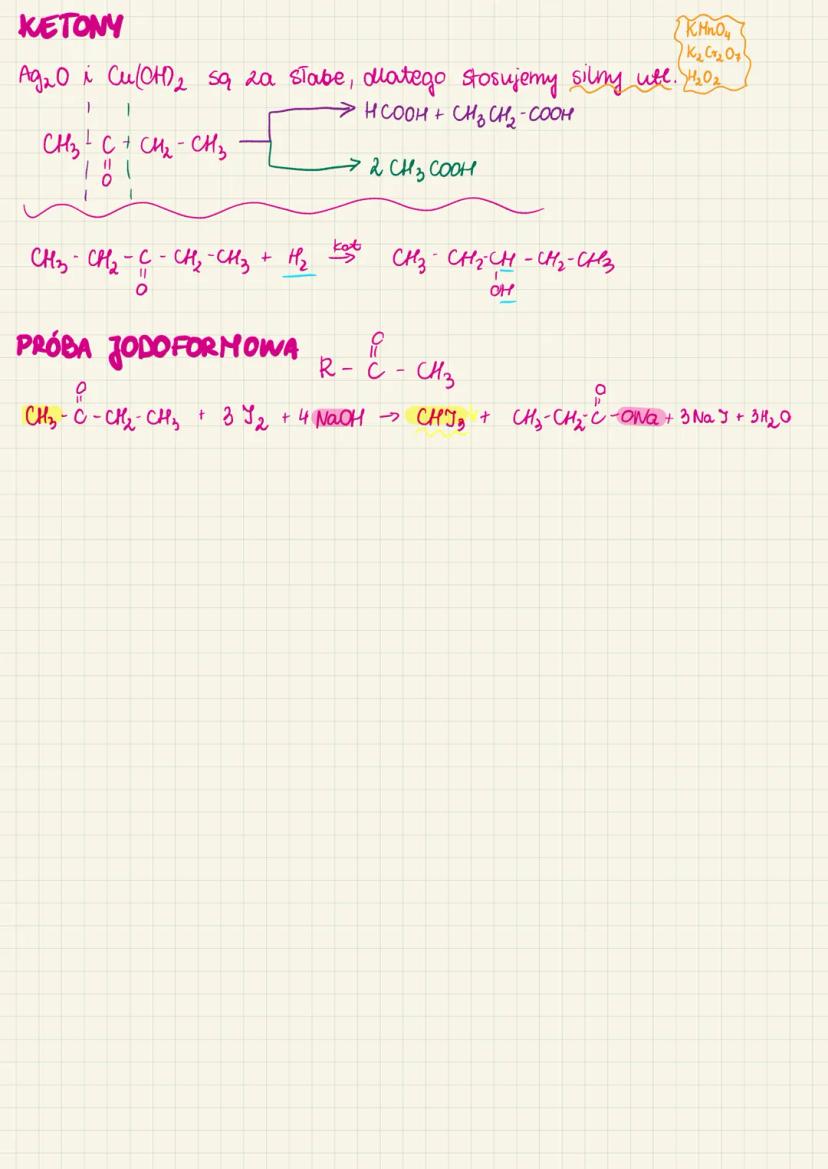 KETONY
KMnO4
K2Cr2O7
H2O2
Ag2O i Cu(OH)2 są za słabe, dlatego stosujemy silny utl.
HCOOH + CH3CH2-COOH
CH3 - C + CH2 - CH3
O
2 CH3COOH
CH3 - CH2 - C - CH2 - CH3 + H2 kat → CH3 - CH2-CH - CH2-CH3
O
OH
PRÓBA JODOFORMOWA
O
R - C - CH3
O
O
CH3 - C - CH2 - CH3 + 3 J2 + 4 NaOH → CHJ3 + CH3-CH2-C-ONa + 3NaJ + 3H2O